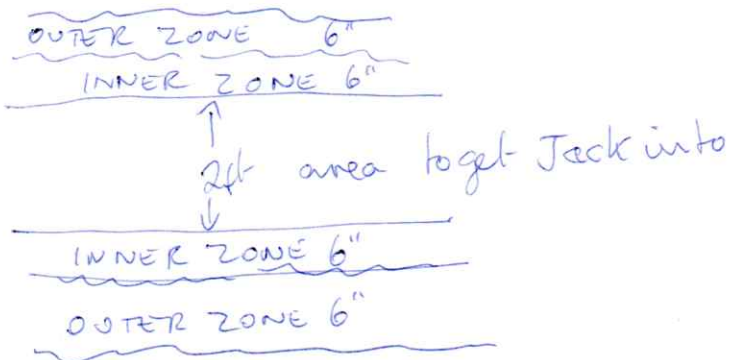 OUTER ZONE 6"
INNER ZONE 6"
2ft area to get Jack into
INNER ZONE 6"
OUTER ZONE 6"